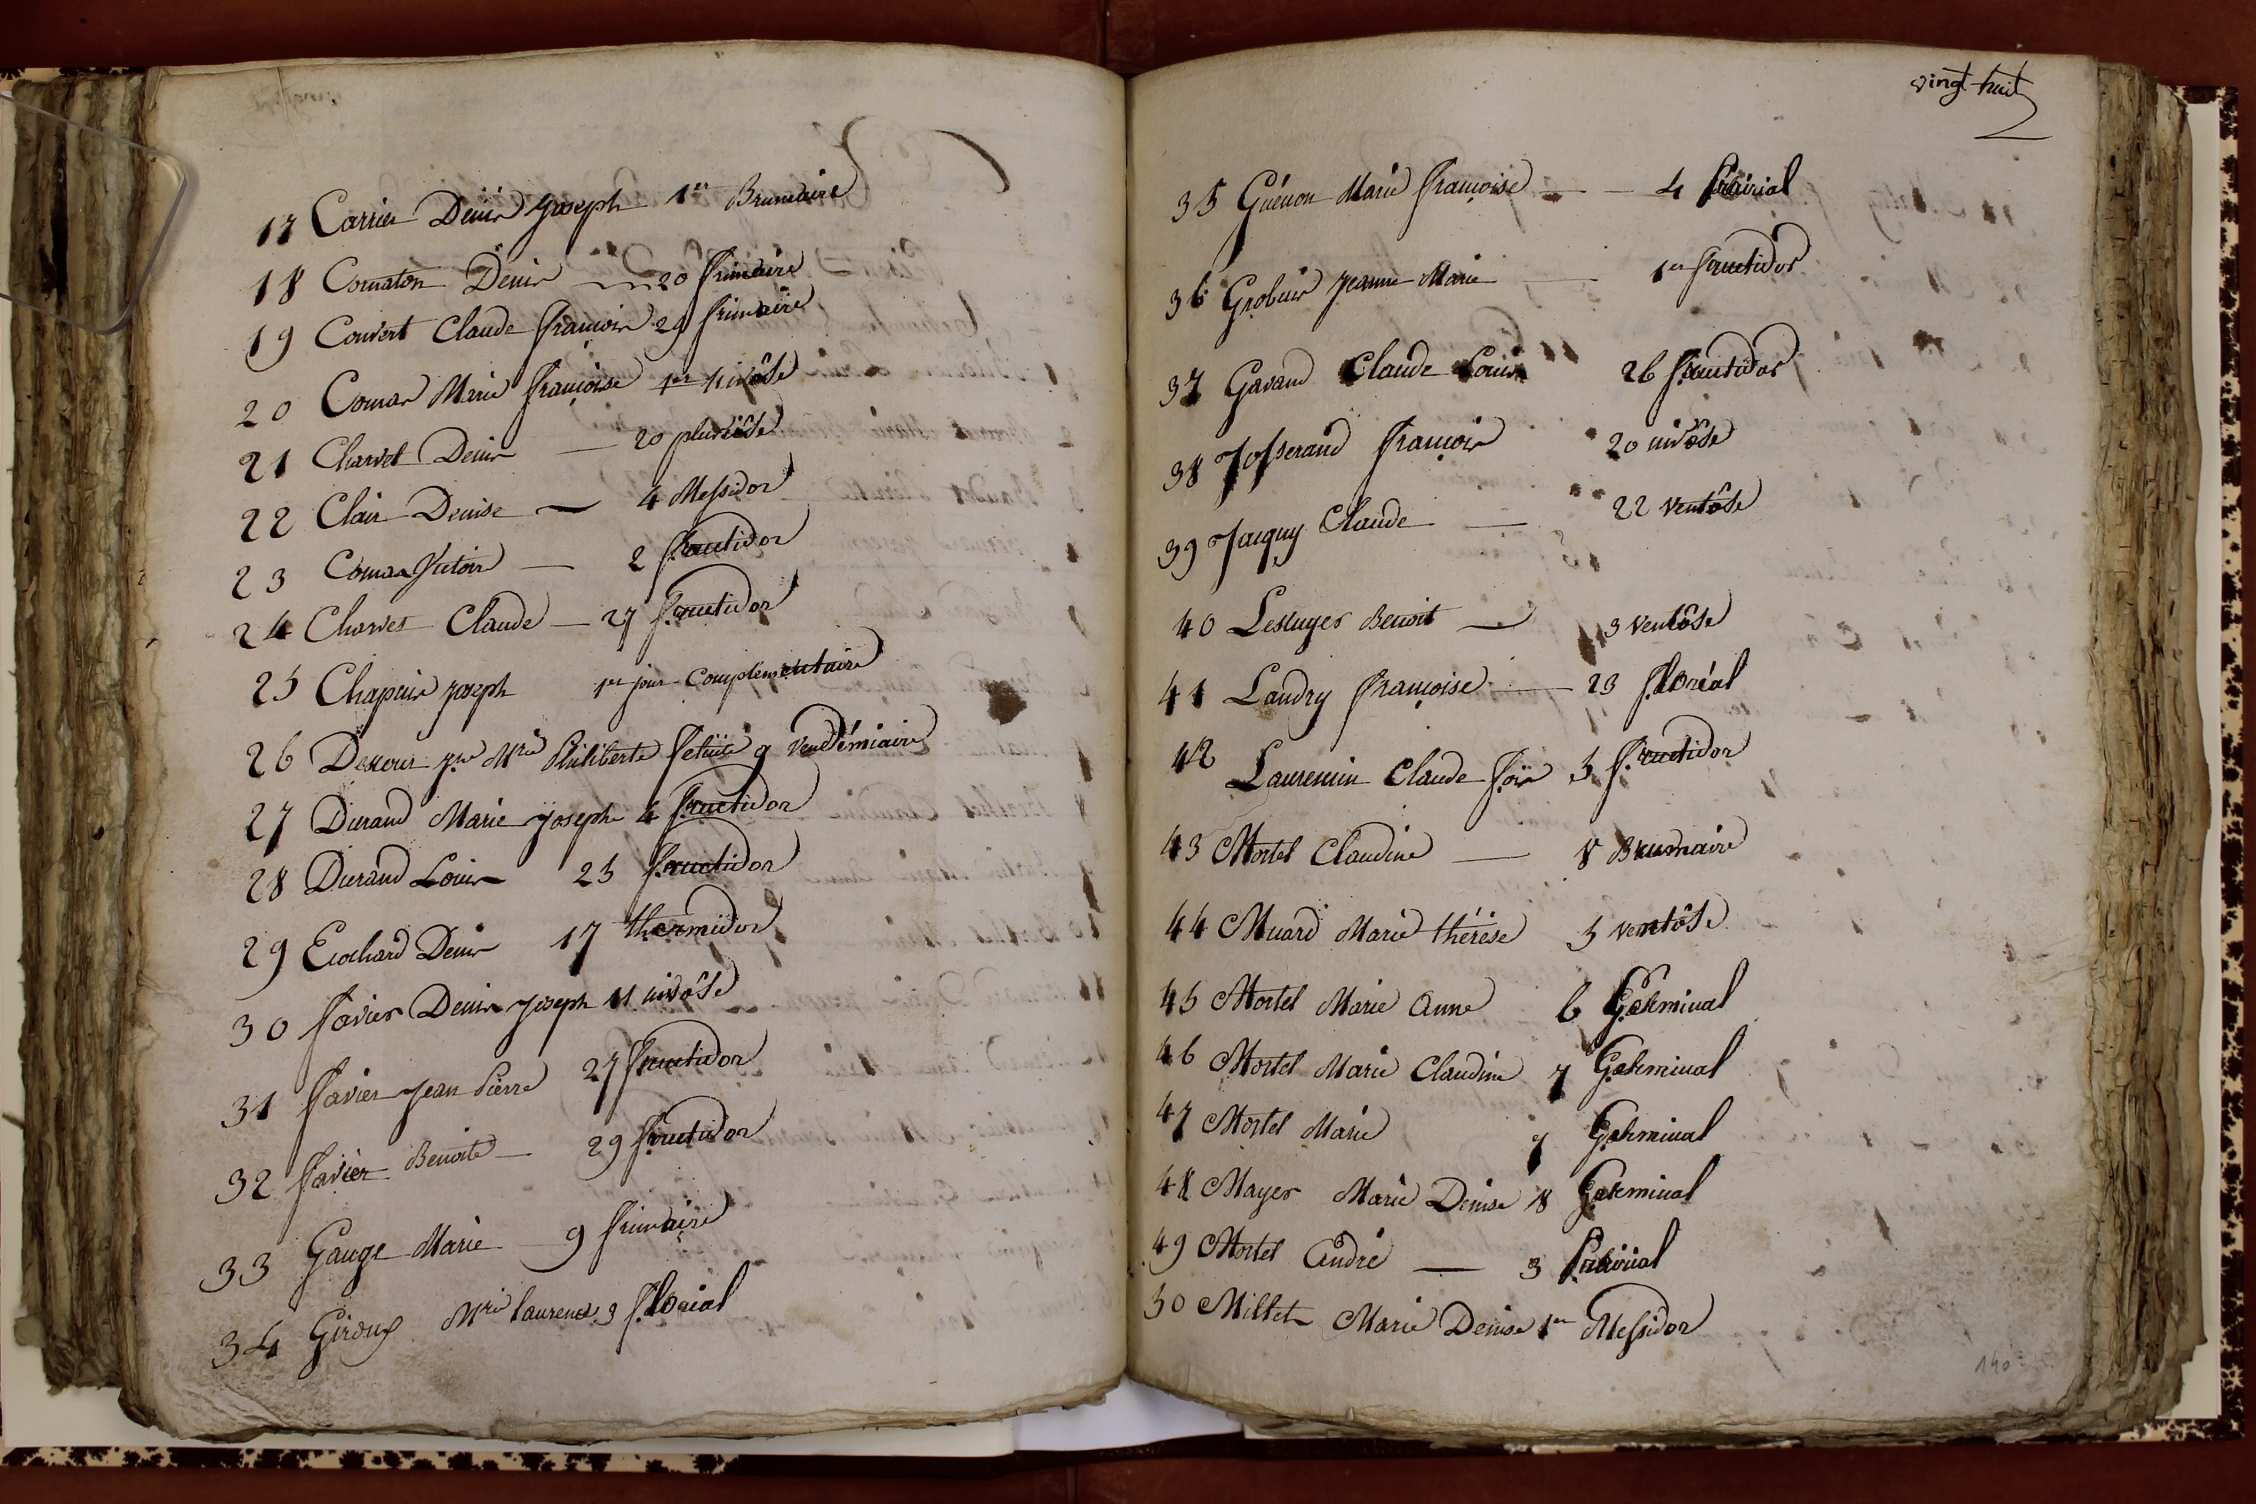 17 Carrier Denis Joseph 1er Brumaire
18 Cornaton Denis — 20 frimaire
19 Convert Claude François 29 frimaire
20 Comas Marie françoise 1er nivôse
21 Charvet Denis — 20 pluviôse
22 Clair Denise — 4 Messidor
23 Comas Victoire — 2 fructidor
24 Charvet Claude — 27 fructidor
25 Chapuis joseph 1er jour Complémentaire
26 jne Mrie Philiberte 9 Vendémiaire
27 Durand Marie Joseph 4 fructidor
28 Durand Louis 25 fructidor
29 Ecochard Denis 17 thermidor
30 favier Denis Joseph 11 nivôse
31 favier Jean Pierre 27 fructidor
32 favier Benoite — 29 fructidor
33 Gauge Marie 9 frimaire
34 Giroux Mrie laurence 9 floréal
vingt-huit
35 Guénon Marie françoise — 4 prairial
36 Grobuis Jeanne Marie — 1er fructidor
37 Gavand Claude Louis 26 fructidor
38 Josserand françois 20 nivôse
39 Jacquy Claude — 22 ventôse
40 Lescuyer Benoit — 3 Ventôse
41 Landry françoise — 23 floréal
42 Laurencin Claude fois 5 fructidor
43 Mortel Claudine — 8 Brumaire
44 Muard Marie thérèse 5 ventôse
45 Mortel Marie Anne 6 Germinal
46 Mortel Marie Claudine 7 Germinal
47 Mortel Marie 7 Germinal
48 Mayer Marie Denise 18 Germinal
49 Mortel André — 3 prairial
50 Millet Marie Denise 1er Messidor
140